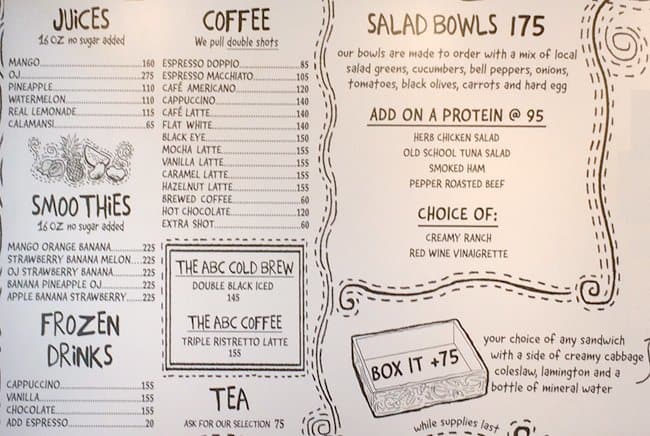 JUiCES
16 OZ no sugar added
MANGO 160
OJ 275
PINEAPPLE 110
WATERMELON 110
REAL LEMONADE 115
CALAMANSI 65
SMOOTHiES
16 OZ no sugar added
MANGO ORANGE BANANA 225
STRAWBERRY BANANA MELON 225
OJ STRAWBERRY BANANA 225
BANANA PINEAPPLE OJ 225
APPLE BANANA STRAWBERRY 225
FROZEN
DRiNKS
CAPPUCCINO 155
VANILLA 155
CHOCOLATE 155
ADD ESPRESSO 20
COFFEE
We pull double shots
ESPRESSO DOPPIO 85
ESPRESSO MACCHIATO 105
CAFÉ AMERICANO 120
CAPPUCCINO 140
CAFÉ LATTE 140
FLAT WHITE 140
BLACK EYE 150
MOCHA LATTE 155
VANILLA LATTE 155
CARAMEL LATTE 155
HAZELNUT LATTE 155
BREWED COFFEE 60
HOT CHOCOLATE 120
EXTRA SHOT 60
THE ABC COLD BREW
DOUBLE BLACK ICED
145
THE ABC COFFEE
TRIPLE RISTRETTO LATTE
155
TEA
ASK FOR OUR SELECTION 75
SALAD BOWLS 175
our bowls are made to order with a mix of local
salad greens, cucumbers, bell peppers, onions,
tomatoes, black olives, carrots and hard egg
ADD ON A PROTEIN @ 95
HERB CHICKEN SALAD
OLD SCHOOL TUNA SALAD
SMOKED HAM
PEPPER ROASTED BEEF
CHOICE OF:
CREAMY RANCH
RED WINE VINAIGRETTE
BOX IT +75
your choice of any sandwich
with a side of creamy cabbage
coleslaw, lamington and a
bottle of mineral water
while supplies last